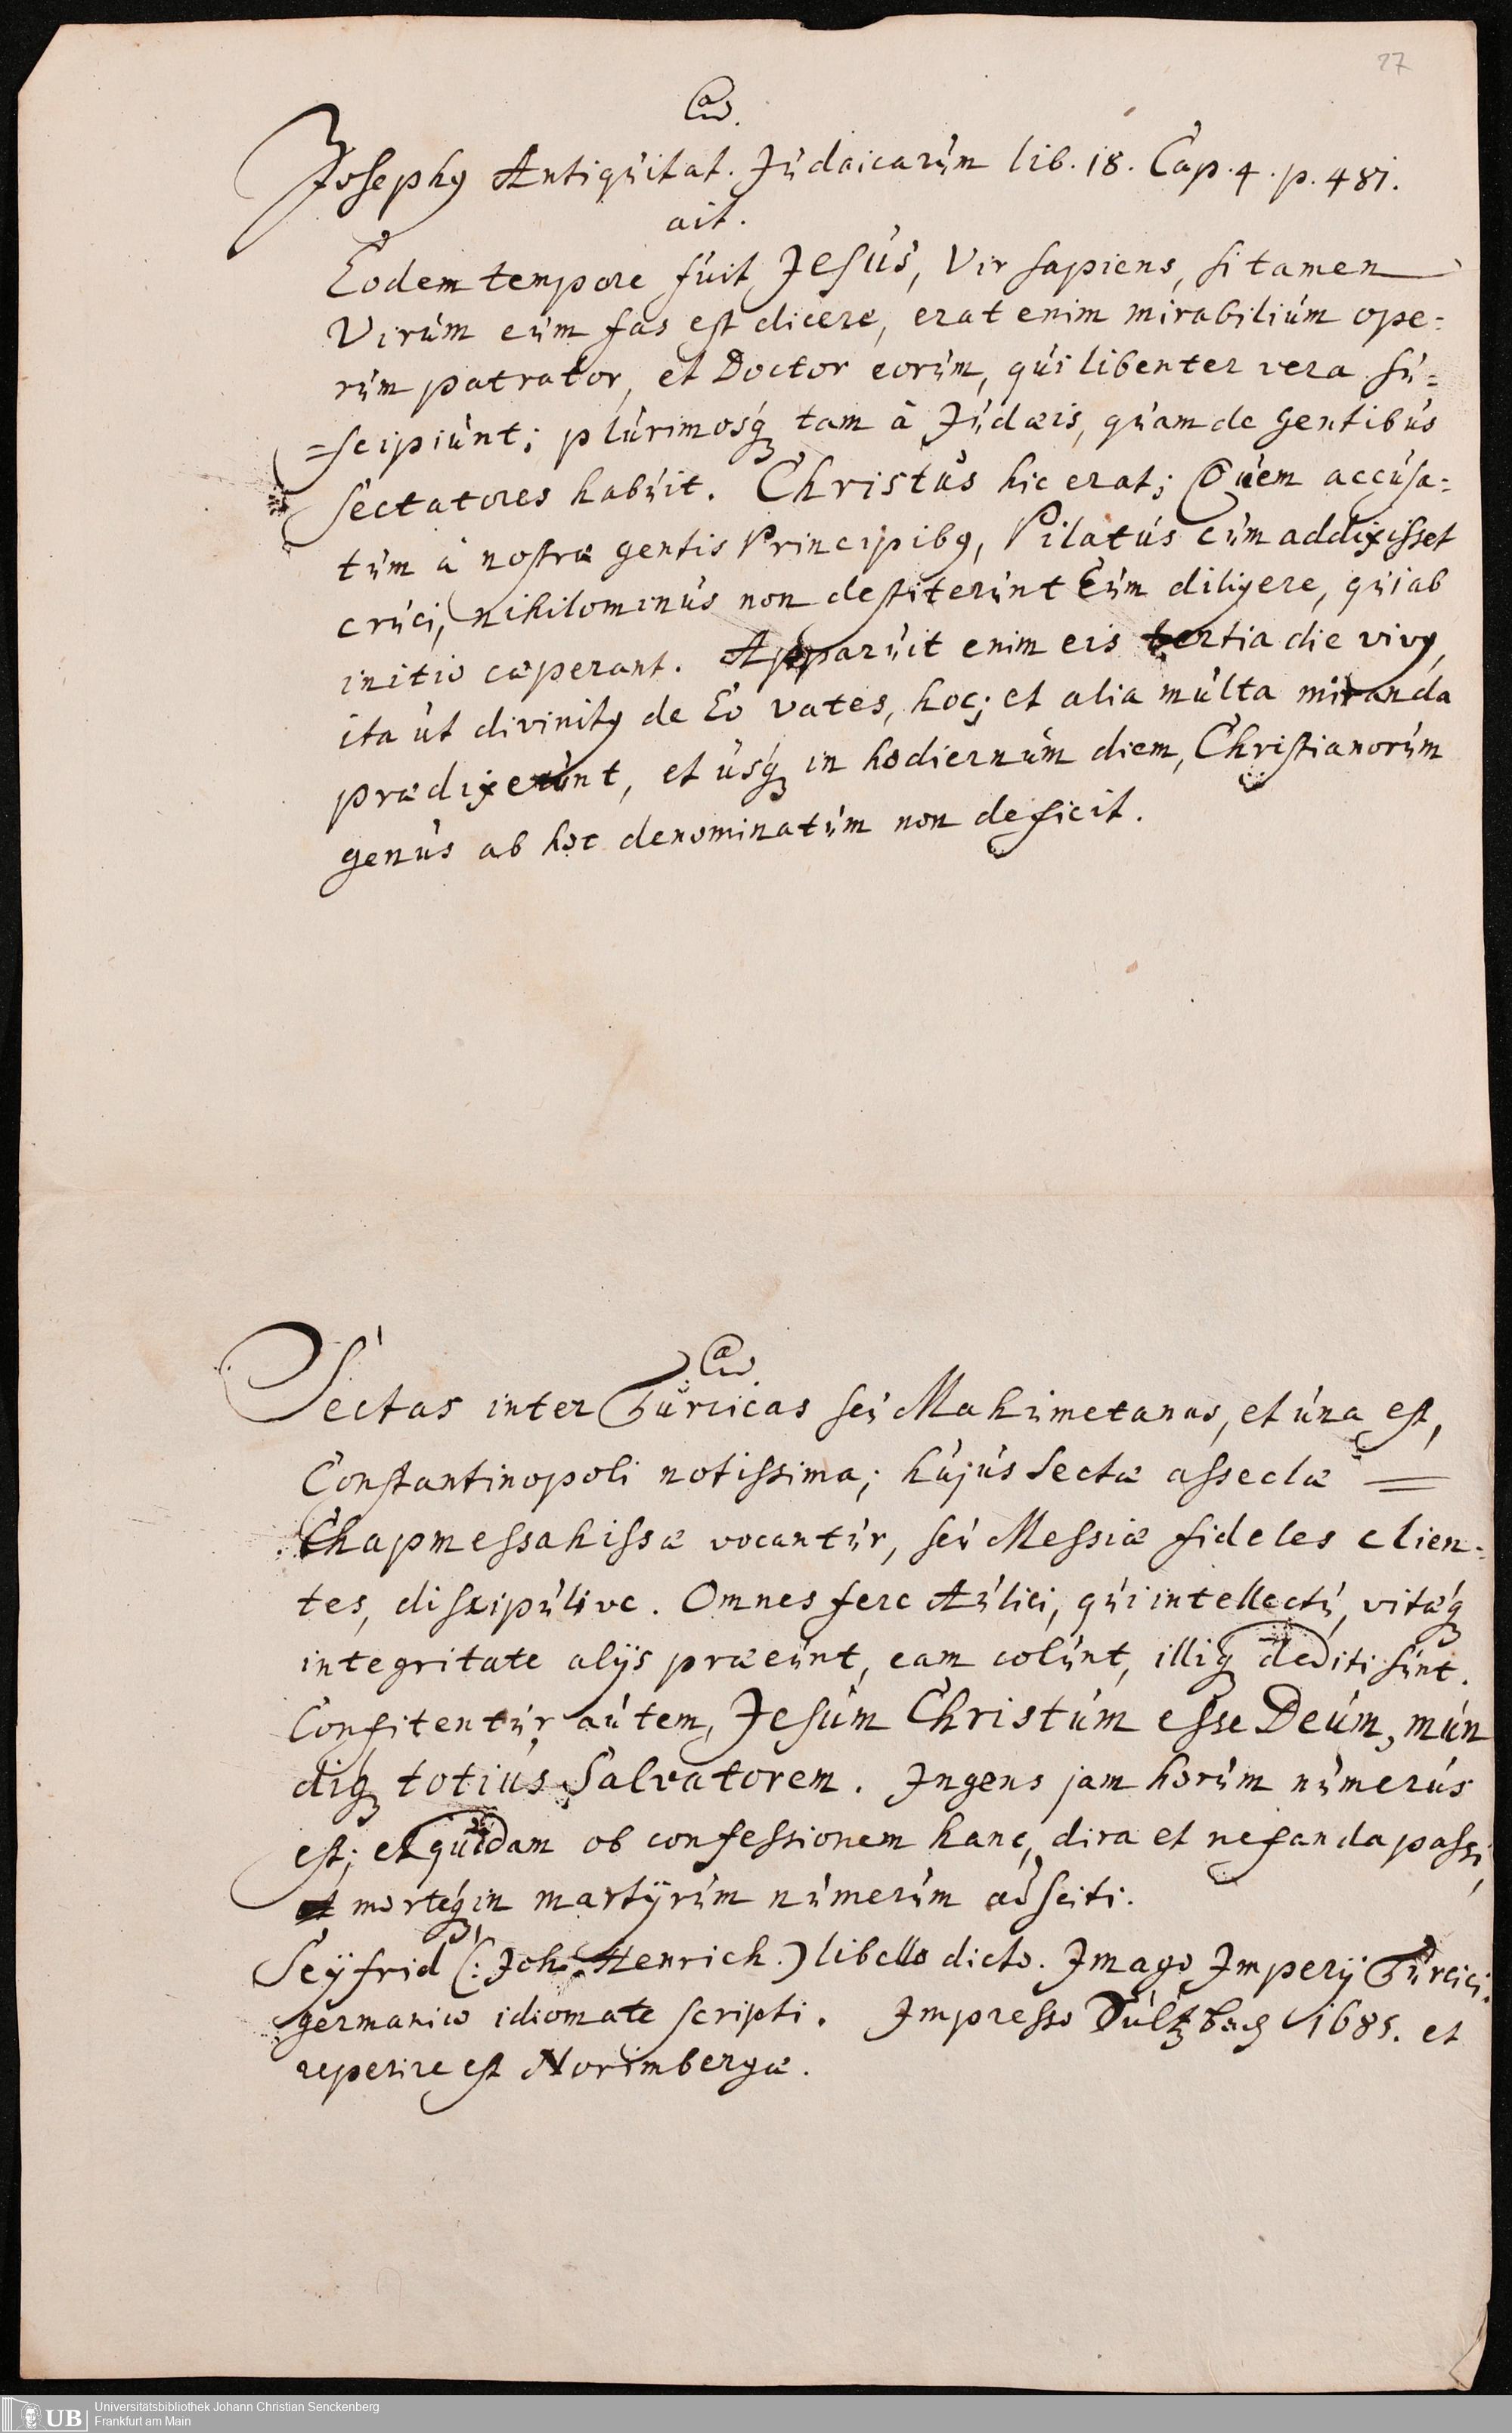 27
Josephꝰ Antiquitat. Judaicarum lib. 18. Cap. 4. p. 481.
ait.
Eodem tempore fuit Jesus, Vir sapiens, si tamen
Virum eum fas est dicere, erat enim mirabilium ope=
rum patrator, et Doctor eorum, qui libenter vera su=
=scipiunt; plurimosq; tam à Judæis, quam de gentibus
sectatores habuit. Christus hic erat; Quem accusa=
tum à nostræ gentis Principibꝰ, Pilatus cum addixisset
cruci, nihilominus non destiterunt Eum diligere, qui ab
initio cæperant. Apparuit enim eis tertia die vivꝰ,
ita ut divinitꝰ de Eo vates, hoc; et alia multa miranda
prædixerunt, et usq; in hodiernum diem, Christianorum
genus ab hoc denominatum non deficit.
Sectas inter Turcicas seu Mahumetanas, et una est,
Constantinopoli notissima; hujus Sectæ asseclæ =
Chapmessahissæ vocantur, seu Messiæ fideles clien=
tes, discipulive. Omnes fere Aulici, qui intellectu, vitæq;
integritate alijs præeunt, eam colunt, illiq; dediti sunt.
Confitentur autem, Jesum Christum esse Deum, mun
diq; totius Salvatorem. Ingens jam horum numerus
est; et quidam ob confessionem hanc, dira et nefanda passi,
morteq; in martÿrum numerum adsciti.
Seÿfrid (: Joh. Henrich.) libello dicto. Imago Imperij Turcici.
germanico idiomate scripti. Impresso Sultzbach 1685. et
reperire est Norimbergæ.
Universitätsbibliothek Johann Christian Senckenberg
Frankfurt am Main
UB